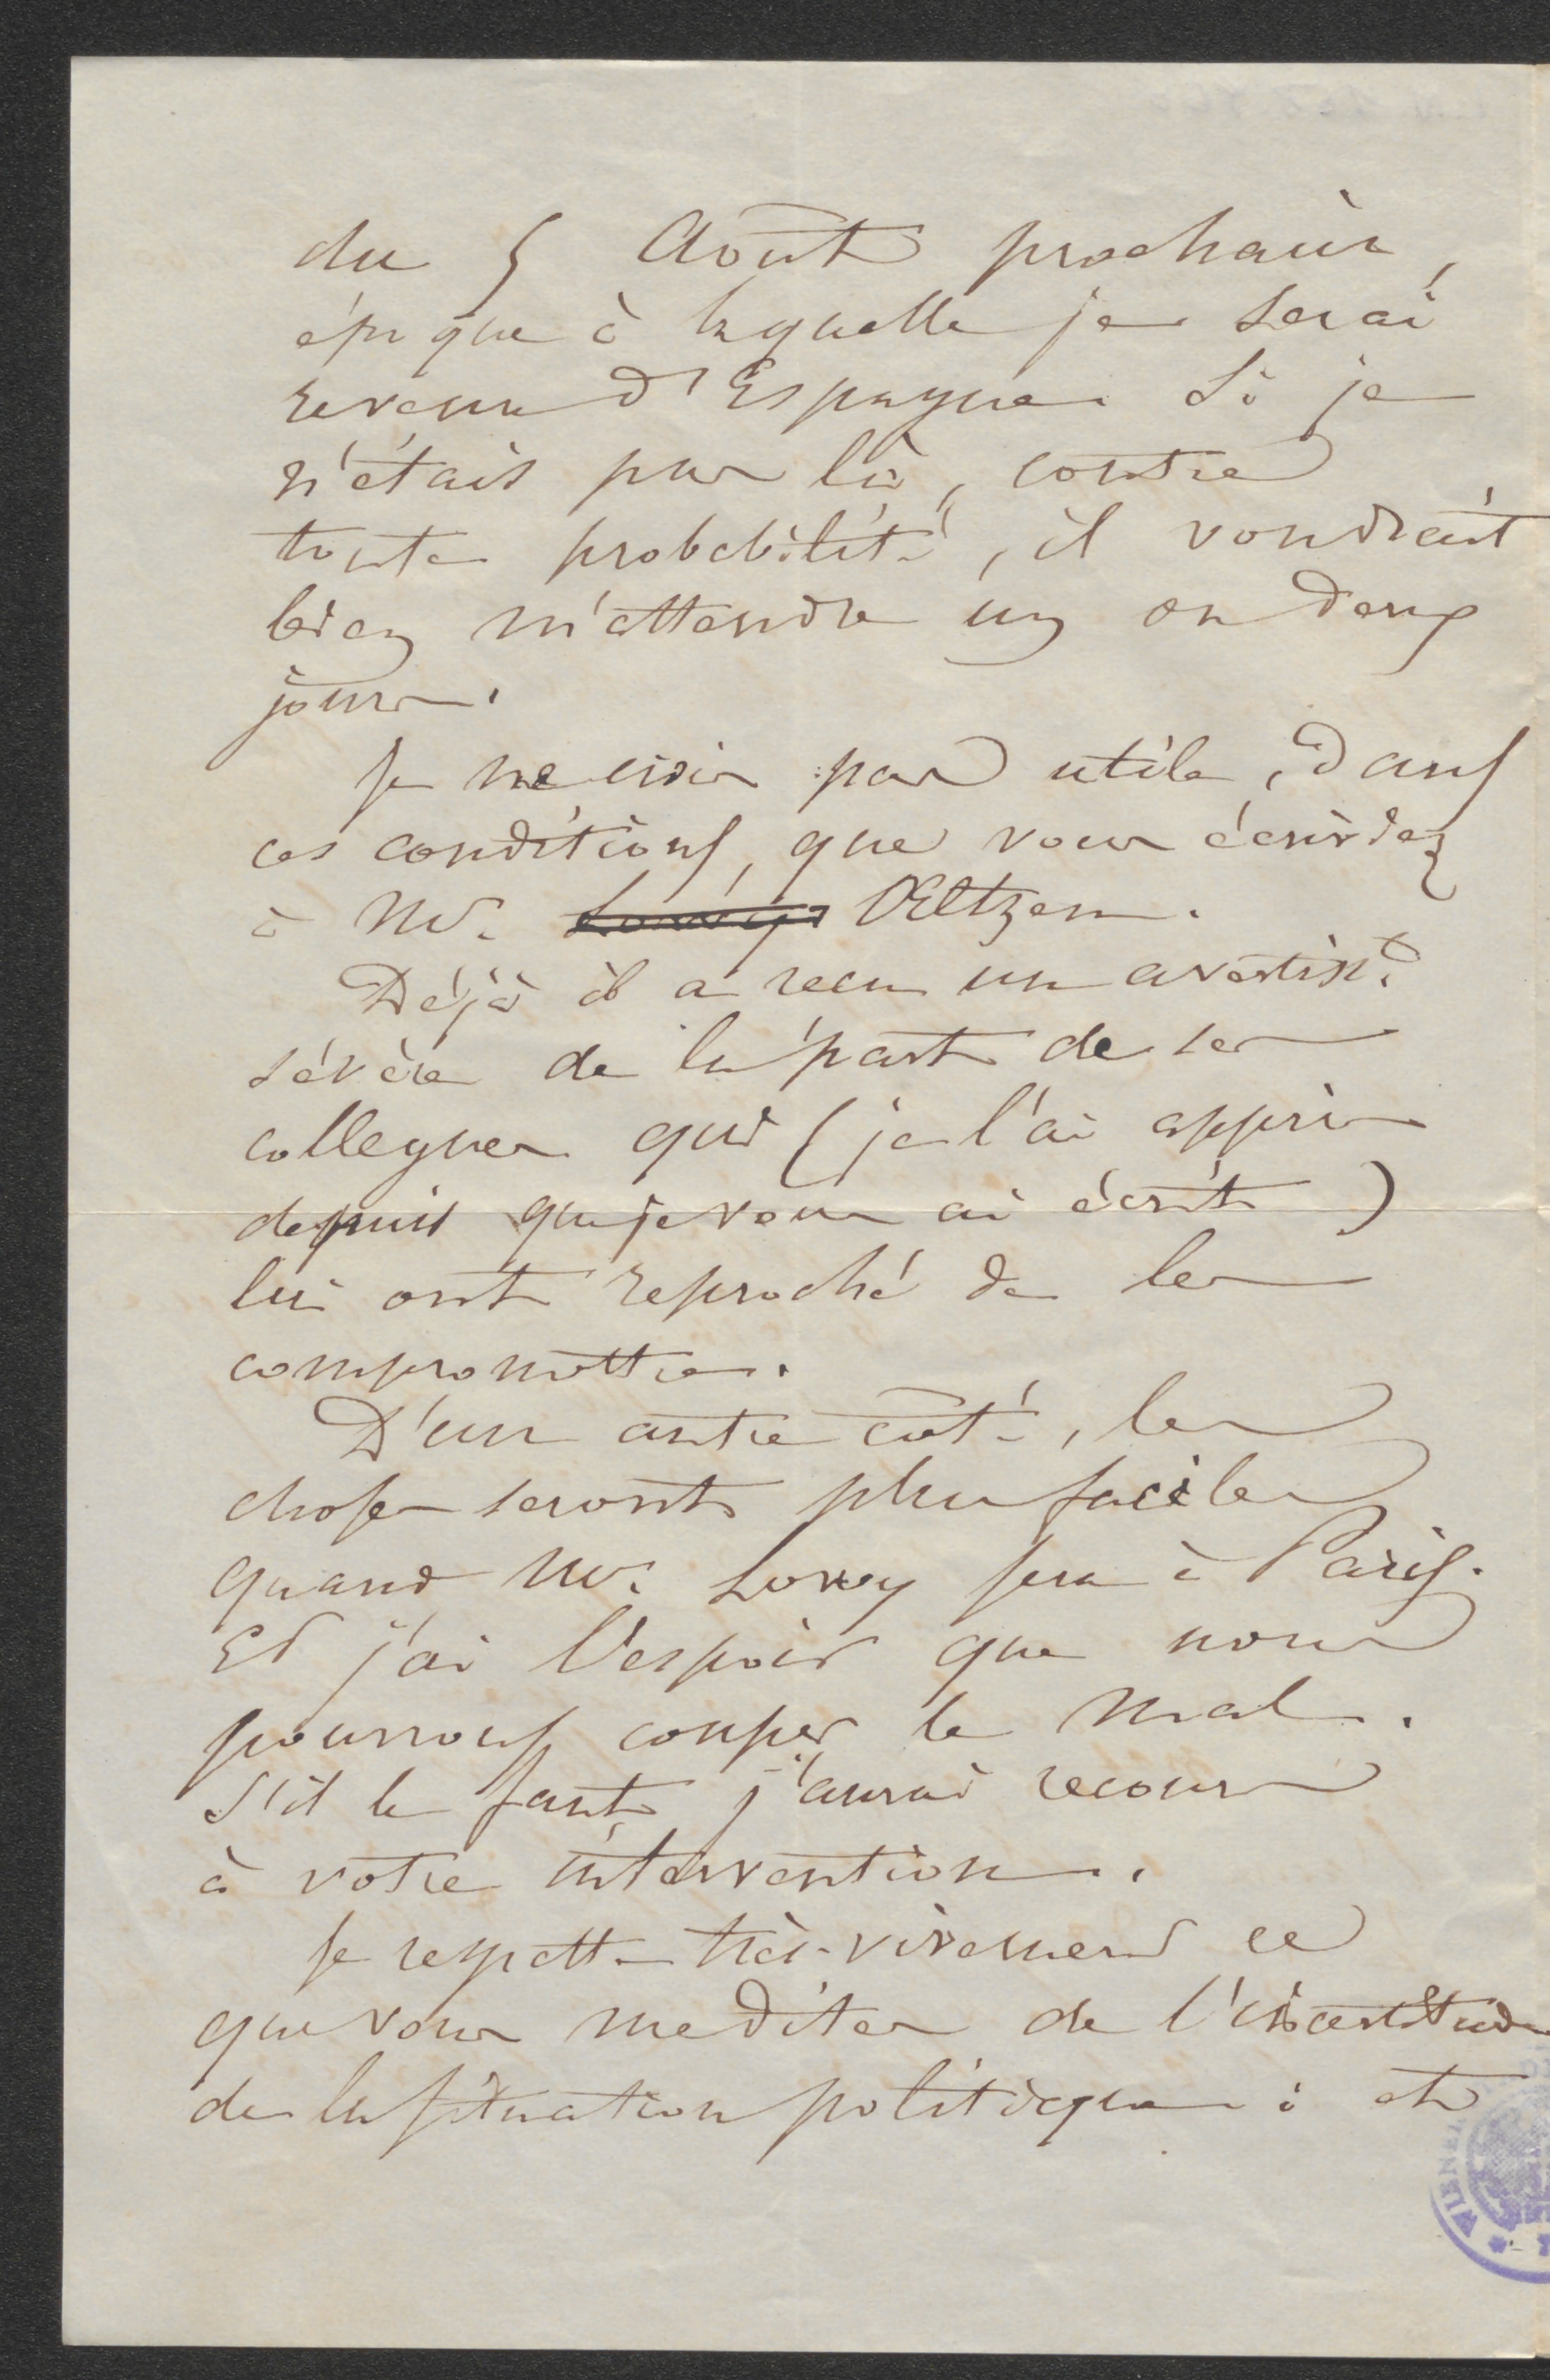 du 5 Août prochain,
époque à laquelle je serai
revenu d'Espagne. Si je
n'étais pas là, contre
toute probabilité, il voudrait
bien m'attendre un ou deux
jours.
Je ne crois pas utile, dans
ces conditions, que vous écriviez
à Mr. Lowy Œltzen.
Déjà il a recu un avertisst
sévère de la part de ses
collegues qui (je l'ai appris
depuis que je vous ai écrit)
lui ont reproché de les
compromettre.
D'un autre côté, les
choses seront plus faciles
quand Mr. Lowy sera à Paris.
Et j'ai l'espoir que nous
pourrons couper le mal.
S'il le faut j'aurai recours
à votre intervention.
Je regrette très-vivement ce
que vous me dites de l'incertitude
de la situation politique : et
WIENER